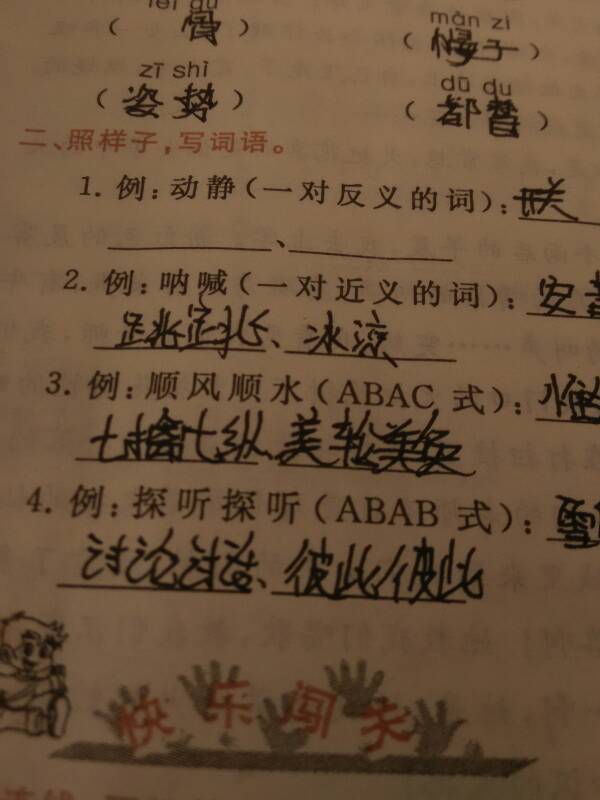 lěi gǔ
(骨) màn zi (幔子)
zī shì dū du
(姿势) (都督)
二、照样子,写词语。
1. 例:动静(一对反义的词):
、
2. 例:呐喊(一对近义的词):安
、冰凉
3. 例:顺风顺水(ABAC 式):
七擒七纵、美轮美奂
4. 例:探听探听(ABAB 式):雪
讨论讨论、彼此彼此
快乐闯关